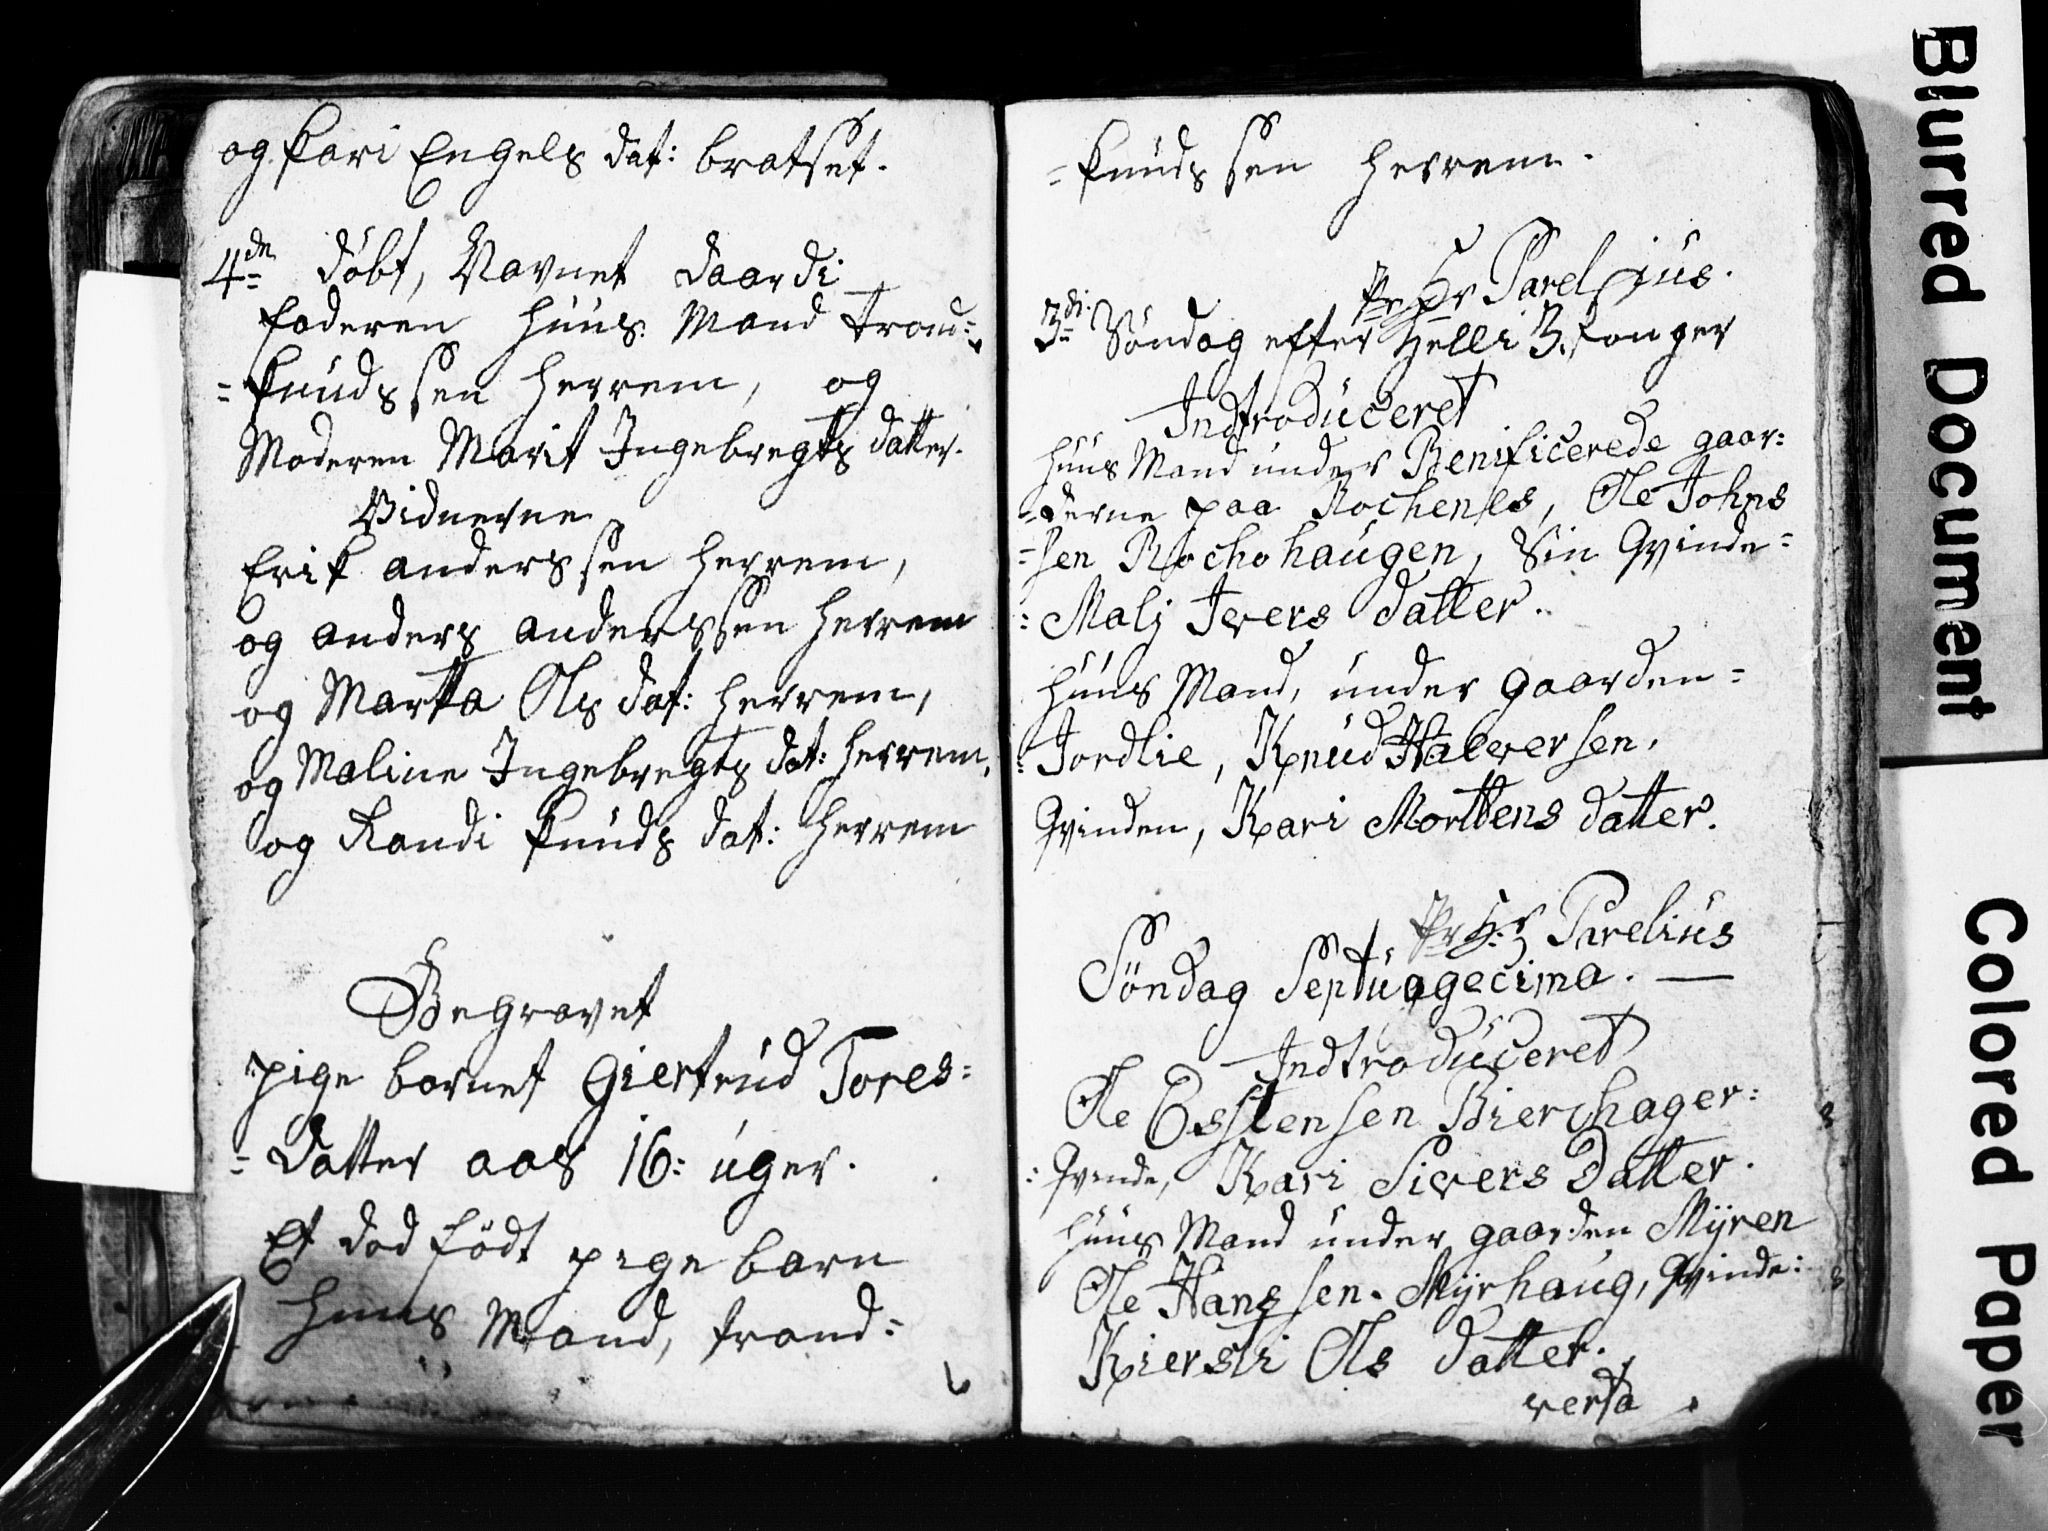 og Kari Engels dat: bratset.
4de døbt, Navnet Daardi
faderen Huus Mand trond=
=Knudssen Herrem, og
Moderen Marit Ingebregts datter.
Vidnerne
Erik anderssen Herrem,
og anders anderssen Herrem
og Marta Ols dat: Herrem,
og Maline Ingebregts dat: Herrem,
og Randi Knuds dat: Herrem
Begravet
pige barnet Giertrud Tores=
=datter aas 16: uger.
Et død födt pige barn
Huus Mand, trond=
=Knudssen Herrem.
Pr Hr Parelius.
3di Søndag efter Helli 3. Konger
Indtroduceret
Huus Mand under Benificerede gaar=
=derne paa Rochenes, Ole Johns
=sen Rochohaugen, Sin Qvinde=
=Malj Ivers Datter.
Huus Mand, under gaarden=
=Jordlie, Knud Halversen,
Qvinden, Kari Morttens datter.
Pr Hr Parelius
Söndag Septuagecima. —
Indtroduceret
Ole Esstensen Bierchager=
=Qvinde, Kari Sivers Datter.
Huus Mand under gaarden Mÿren
Ole Hanssen. Mÿrhaug, Qvinde=
Kiersti Ols datter.
verta
Blurred Document
Colored Paper